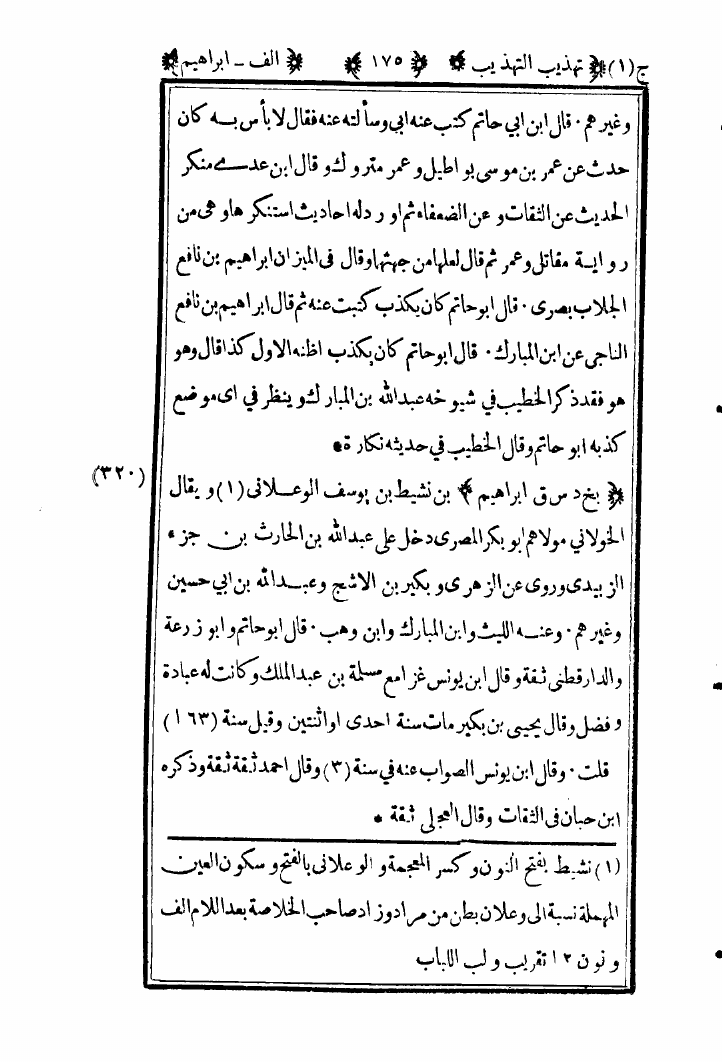 ج(١) ﴿ تهذيب التهذيب ﴾ ﴿ ١٧٥ ﴾ ﴿ الف - ابراهيم ﴾
وغيرهم · قال ابن ابي حاتم كتب عنه ابي وسألته عنه فقال لا بأس به كان
حدث عن عمر بن موسى بواطيل وعمر متروك وقال ابن عدى منكر
الحديث عن الثقات وعن الضعفاء ثم اورد له احاديث استنكرها وهى من
رواية مقاتل وعمر ثم قال لعلها من جهتها وقال فى الميزان ابراهيم بن نافع
الجلاب بصرى · قال ابو حاتم كان يكذب كتبت عنه ثم قال ابراهيم بن نافع
الناجى عن ابن المبارك · قال ابو حاتم كان يكذب اظنه الاول كذا قال وهو
هو فقد ذكر الخطيب في شيوخه عبدالله بن المبارك وينظر في اى موضع
كذبه ابو حاتم وقال الخطيب في حديثه نكارة *
(٣٢٠)
﴿ بخ د س ق ابراهيم ﴾ بن نشيط بن يوسف الوعلانى (١) ويقال
الخولاني مولاهم ابو بكر المصرى دخل على عبدالله بن الحارث بن جزء
الزبيدى وروى عن الزهرى وبكير بن الاشج وعبدالله بن ابي حسين
وغيرهم · وعنه الليث وابن المبارك وابن وهب · قال ابو حاتم وابو زرعة
والدارقطنى ثقة وقال ابن يونس غزا مع مسلمة بن عبد الملك وكانت له عبادة
وفضل وقال يحيى بن بكير مات سنة احدى او اثنتين وقيل سنة (١٦٣)
قلت · وقال ابن يونس الصواب عنه في سنة (٣) وقال احمد ثقة ثقة وذكره
ابن حبان فى الثقات وقال العجلى ثقة *
(١) نشيط بفتح النون وكسر المعجمة والوعلانى بالفتح وسكون العين
المهملة نسبة الى وعلان بطن من مراد وزاد صاحب الخلاصة بعد اللام الف
ونون ١٢ تقريب ولب اللباب